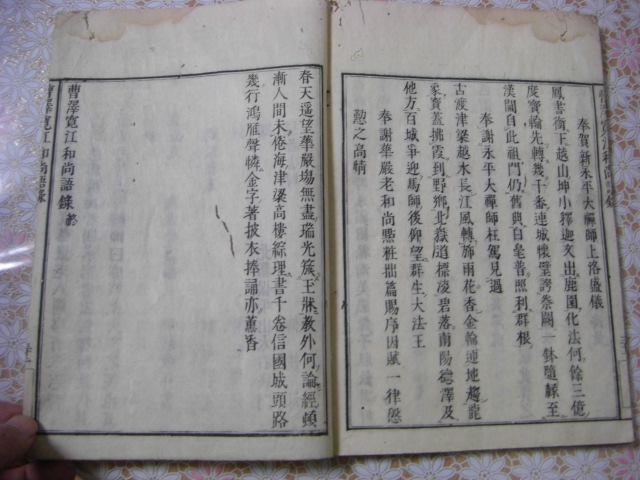 奉賀新永平大禪師上洛盛儀
鳳書銜下越山坤小釋迦文出鹿園化法何餘三億
度寶輪先轉幾千番連城懷璧誇卷闕一鉢隨緣至
漢關自此祖門仍舊典日皂普照利群根
奉謝永平大禪師枉駕見過
古渡津梁越水長江風轉斾雨花香金輪連地趨龍
象寳蓋拂霞到野鄉北嶽道標凌碧落南陽德澤及
他方百城爭迎馬師後仰望群生大法王
奉謝華嚴老和尚㸃粧拙篇賜序因賦一律
愆之高情
春天遥望華嚴場無盡瑞光簇王狀教外何論經頓
漸人間未倦海津梁高樓綜理書千卷信國城頭路
幾行鴻雁聲憐金字著披衣捧誦亦薰香
曹澤寬江和尚語錄終